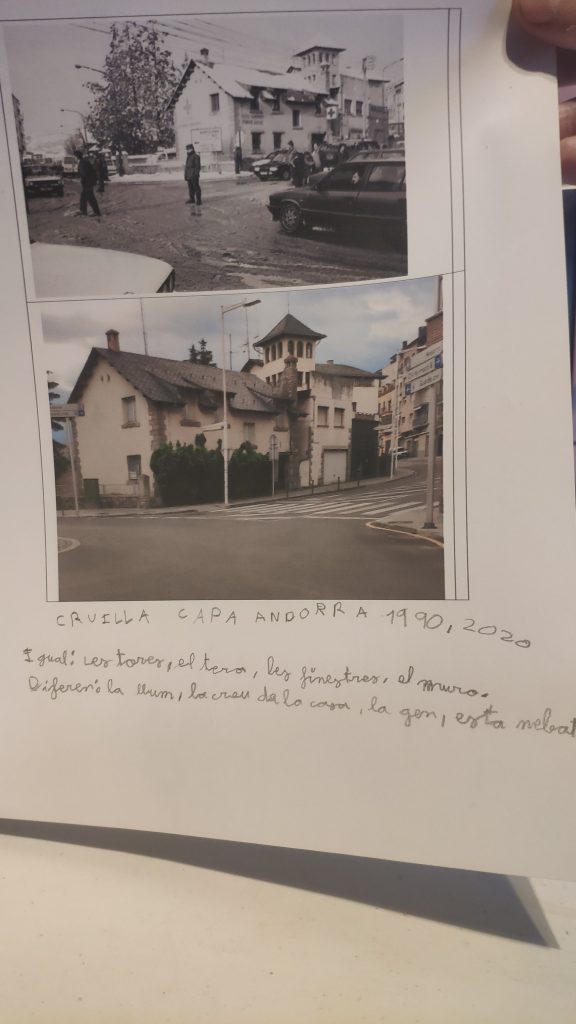 CRUILLA CAPA ANDORRA 1990, 2020
Igual: Les tores, el tera, les finestres, el muro.
Diferen: la llum, la creu de la casa, la gen, esta nebat